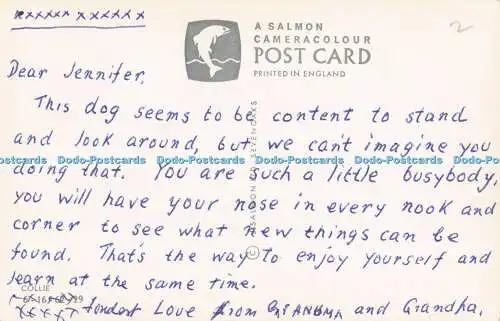 xxxxxx xxxxxx
A SALMON
CAMERACOLOUR
POST CARD
PRINTED IN ENGLAND
2
Dear Jennifer,
This dog seems to be content to stand
and look around, but we can't imagine you
doing that. You are such a little busybody,
you will have your nose in every nook and
corner to see what new things can be
found. That's the way to enjoy yourself and
learn at the same time.
COLLIE
fondest Love from GRANDMA and Grandpa,
Dodo-Postcards Dodo-Postcards Dodo-Postcards Dodo-Postcards Dodo-Postcards